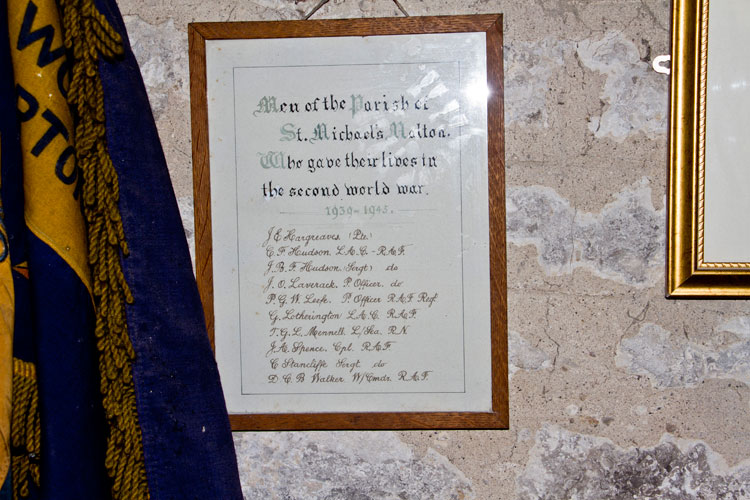 WO
PTO
Men of the Parish of
St. Michael's Malton.
Who gave their lives in
the second world war.
1939-1945.
J E Hargreaves (Pte)
C. F. Hudson. L.A.C.-R.A.F.
J. B. F. Hudson. (Sergt) do
J. O. Laverack. P. Officer. do
P. G. W. Leefe. P. Officer R.A.F. Regt
G. Lotherington L.A.C. R.A.F.
T. G. L. Mennell. L/Sea. R.N
J. A. Spence. Cpl. R.A.F.
C Stancliffe Sergt. do
D. C. B Walker. W/Cmdr. R.A.F.